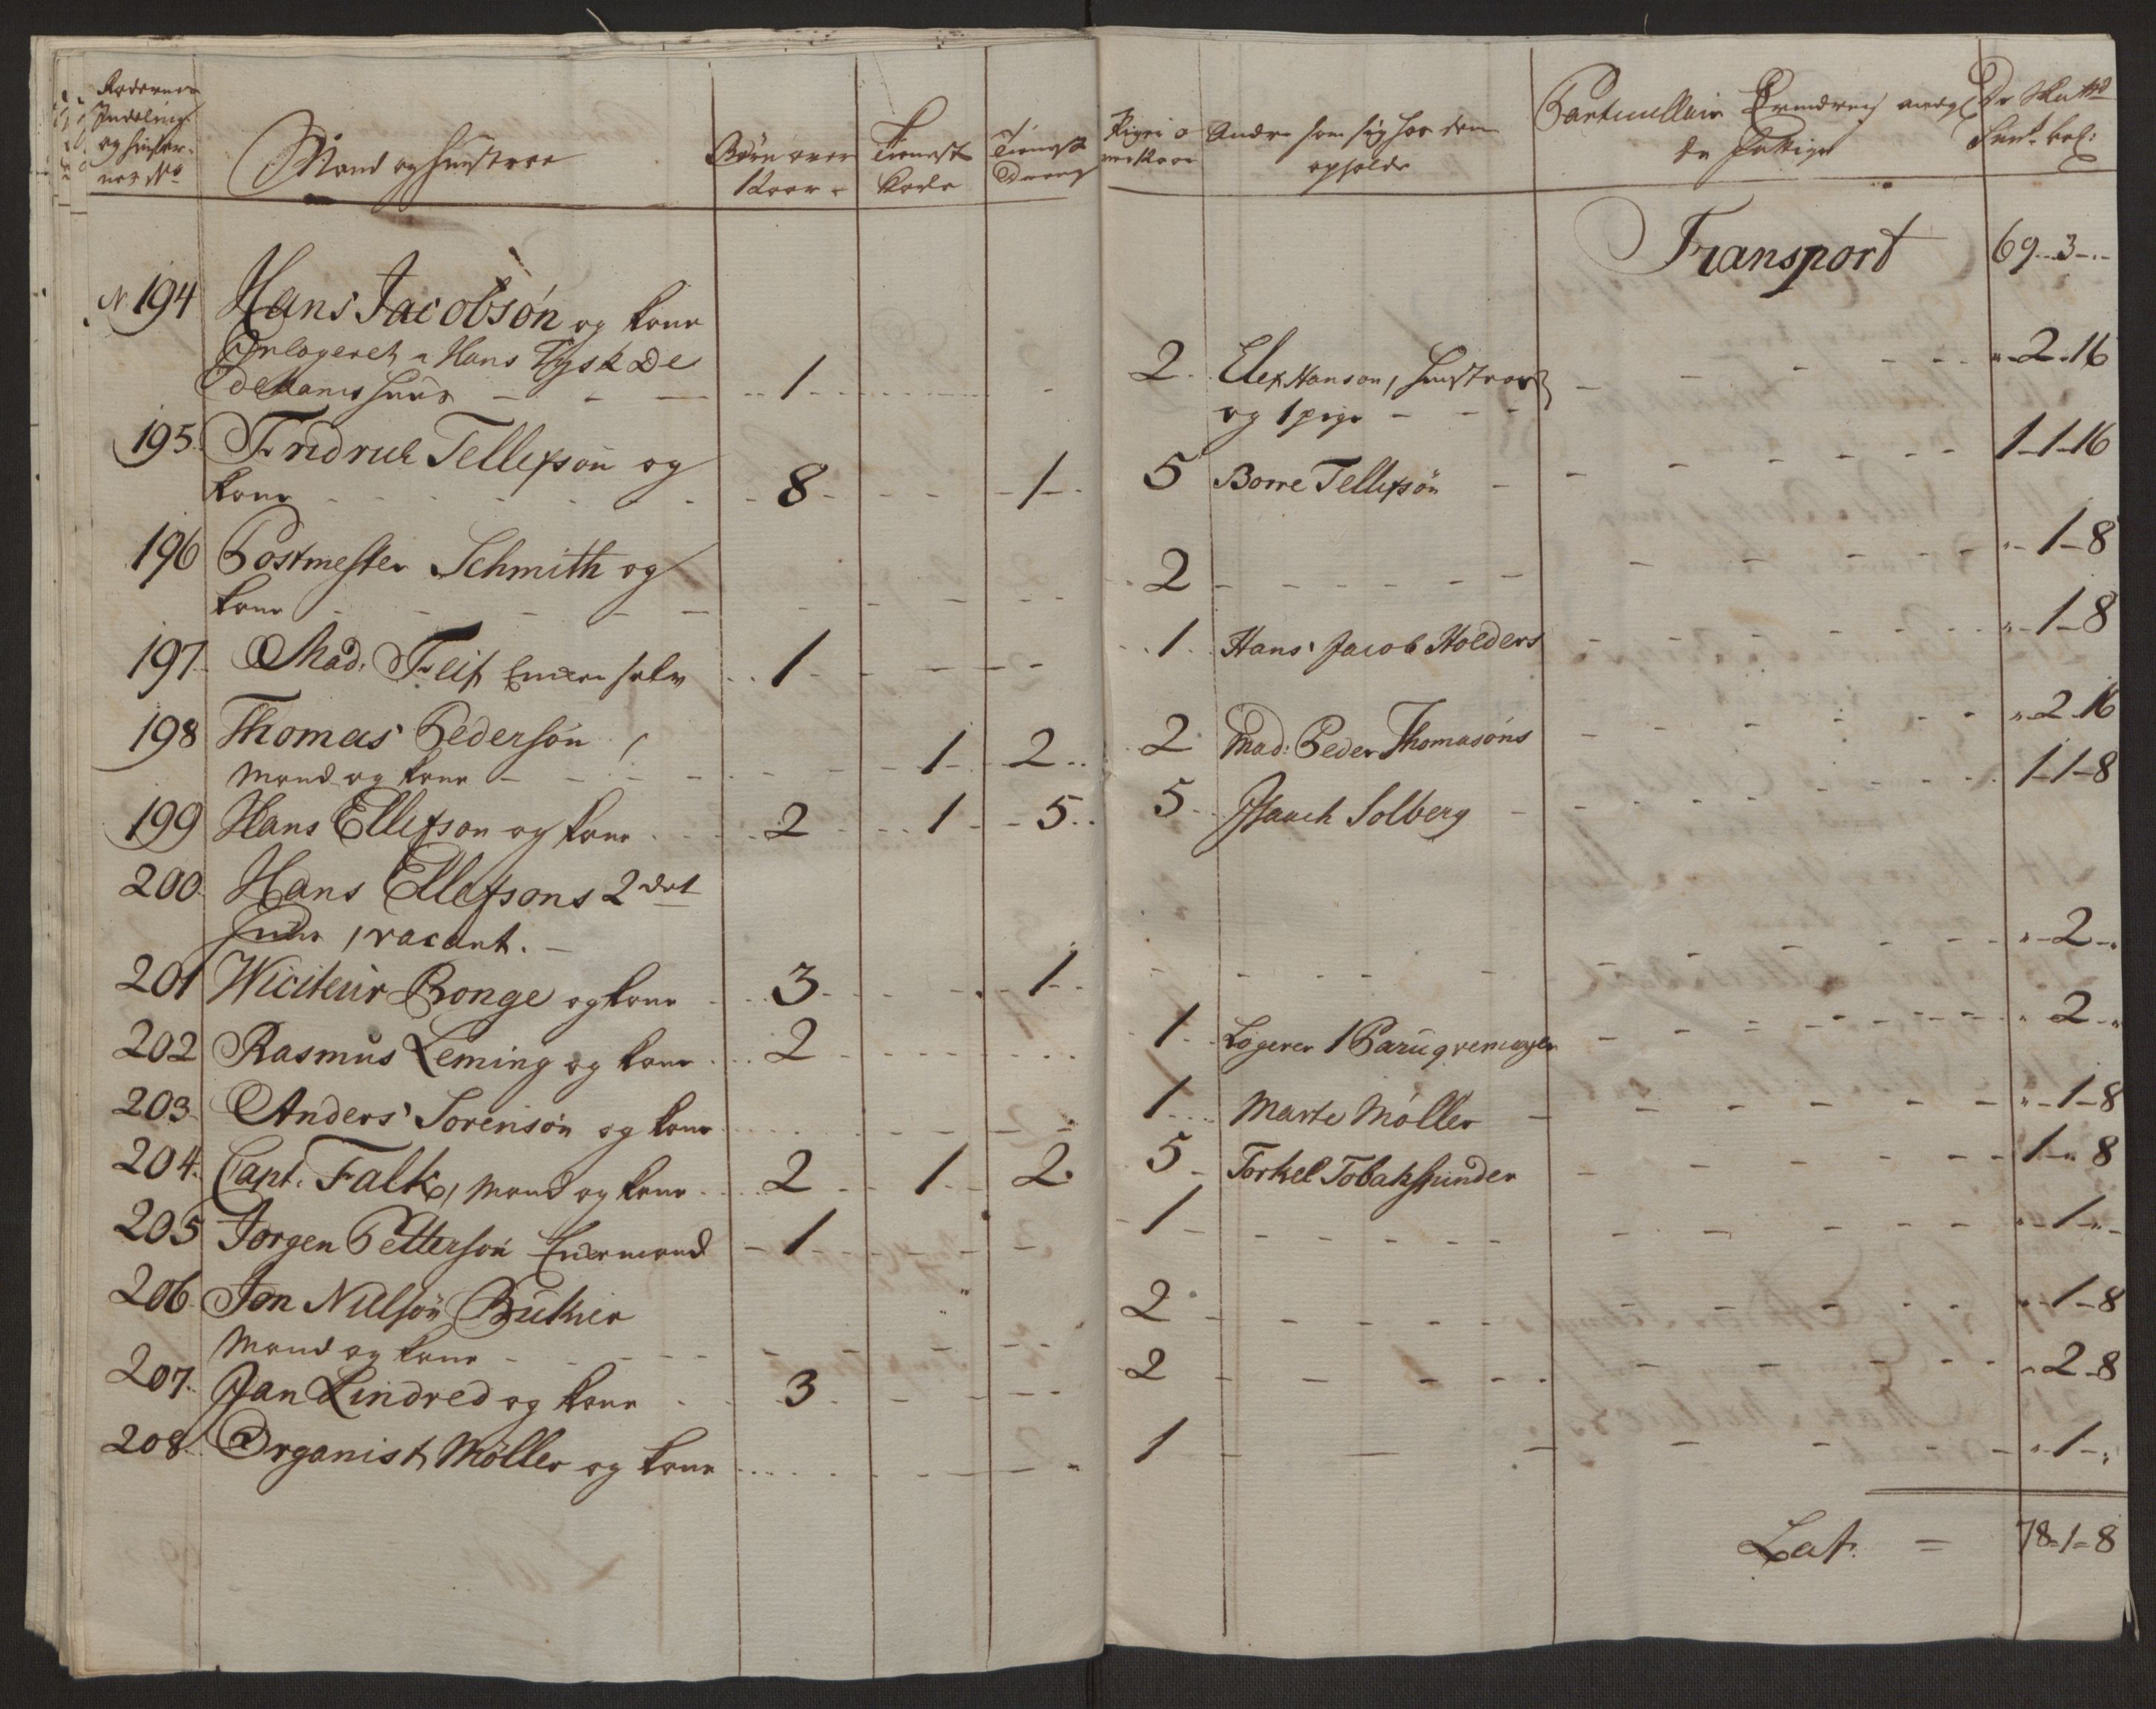 Rodernes
Indeling
og Huuser-
nes No
Mand og Hustroe
Børn over
1 Aar
Tieneste
Karle
Tieneste
Dreng
Piger
Andre som sig hos dem
opholde
Particullair Erindring
de Fattige
Transport 69 - 3 -
N 194 Hans Jacobsøn og kone
Hans Tysk De
huus - - - 1 2 Elef Hanson, Hustroe - - - 2 - 16
og 1 pige - - -
195 Fridrich Tellefson og
kone - - 8 - - 1 - 5 Borre Tellefsøn - - - 1 - 1 - 16
196 Postmester Schmith og
kone - - - 2 - - - 1 - 8
197 Mad: Feif Encken selv 1 - - - 1 Hans Jacob Holders - - - 1 - 8
198 Thomas Pedersøn /
Mand og kone - - - 1 - 2 2 Mad: Peder Thomasøns - - - 2 - 16
199 Hans Ellefson og kone 2 1 - 5 5 Isaach Solberg - - - 1 - 1 - 8
200 Hans Ellefsons 2det
Huus / vacant. -
201 Wiciteur Bonge og kone 3 - - 1 - - - - 2 -
202 Rasmus Leming og kone 2 - - - 1 Logerer 1 Paruqvemager - - - 2 -
203 Anders Sorensøn og kone - - - 1 Marte Møller - - - 1 - 8
204 Capt. Falk, Mand og kone 2 - 1 - 2 5 - Torkel Tobakspinder - - - 1 - 8
205 Jørgen Pettersøn Enckemand - 1 - - - 1 - - - 1 -
206 Jon Nielsøn Butkier
Mand og kone - - - 2 - - - 1 - 8
207 Jan Lindred og kone 3 - - - 2 - - - 2 - 8
208 Organist Møller og kone - - - 1 - - - 1 -
Lat. = 78 - 1 - 8